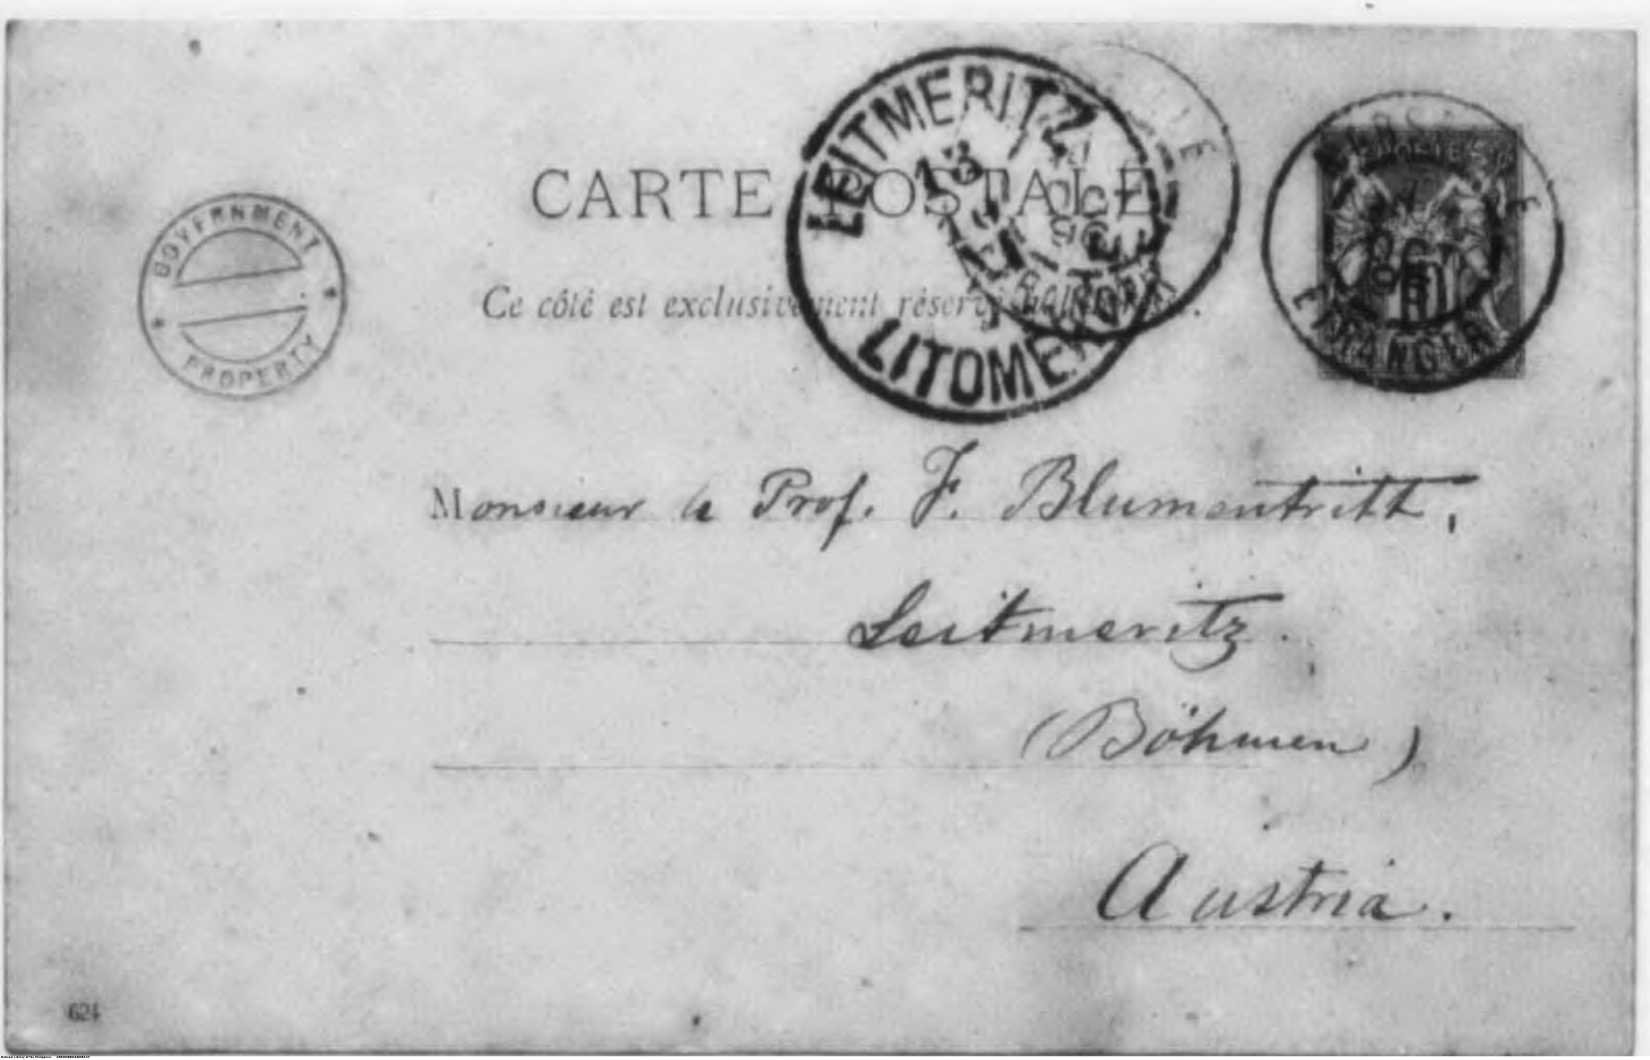 LEITMERITZ
13
LITOMĚ
CARTE POSTALE
GOVERNMENT
PROPERTY
ETRANGER
Ce côté est exclusivement réservé
Monsieur le Prof. F. Blumentritt,
Leitmeritz.
(Böhmen)
Austria.
624